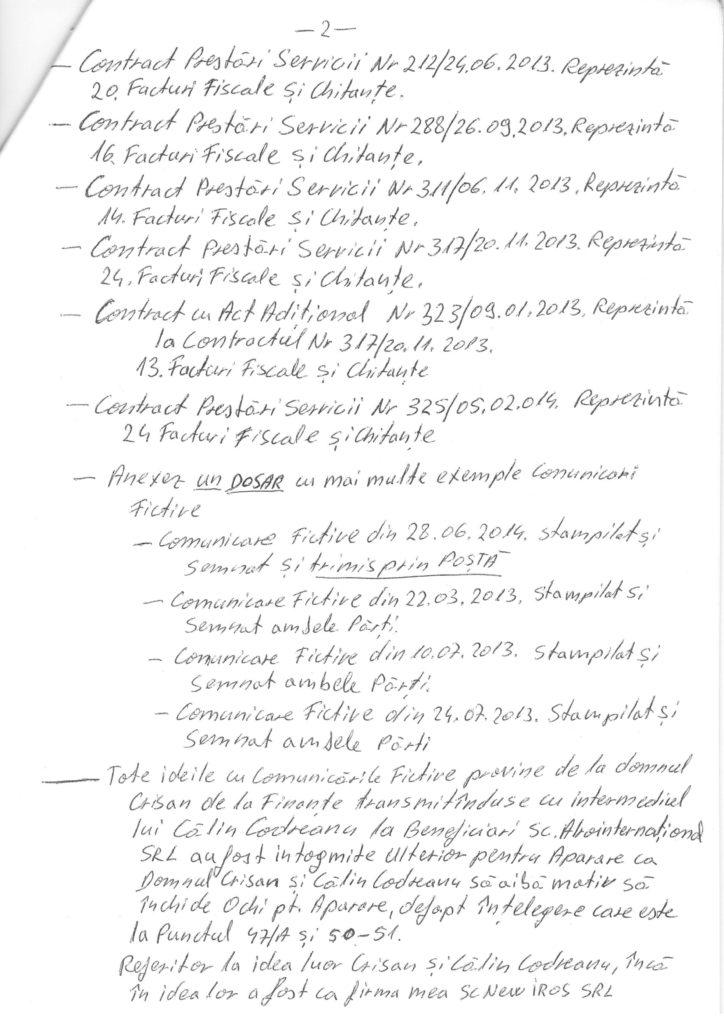 —2—
— Contract Prestări Servicii Nr 212/24.06.2013. Reprezintă
20. Facturi Fiscale și Chitanțe.
— Contract Prestări Servicii Nr 288/26.09.2013. Reprezintă
16. Facturi Fiscale și Chitanțe.
— Contract Prestări Servicii Nr 311/06.11.2013. Reprezintă
14. Facturi Fiscale și Chitanțe.
— Contract Prestări Servicii Nr 317/20.11.2013. Reprezintă
24. Facturi Fiscale și Chitanțe.
— Contract cu Act Adițional Nr 323/09.01.2013. Reprezintă
la Contractul Nr 317/20.11.2013.
13. Facturi Fiscale și Chitanțe
— Contract Prestări Servicii Nr 325/05.02.014. Reprezintă
24 Facturi Fiscale și Chitanțe
— Anexez un DOSAR cu mai multe exemple Comunicari
Fictive
— Comunicare Fictive din 28.06.2014. Stampilat și
Semnat și trimis prin POȘTĂ
— Comunicare Fictive din 22.03.2013. Stampilat si
Semnat ambele Părți.
— Comunicare Fictive din 10.07.2013. Stampilat și
Semnat ambele Părți.
— Comunicare Fictive din 24.07.2013. Stampilat și
Semnat ambele Părti
— Tote ideile cu Comunicările Fictive provine de la domnul
Crisan de la Finanțe transmitînduse cu intermediul
lui Călin Codreanu la Beneficiari SC. Abointernațional
SRL au fost intogmite Ulterior pentru Aparare ca
Domnul Crisan și Călin Codreanu să aibă motiv să
închide Ochi pt. Aparare, defapt înțelegere care este
la Punctul 47/A și 50-51.
Referitor la idea luor Crisan și Călin Codreanu, încă
în idea lor a fost ca firma mea SC New iROS SRL